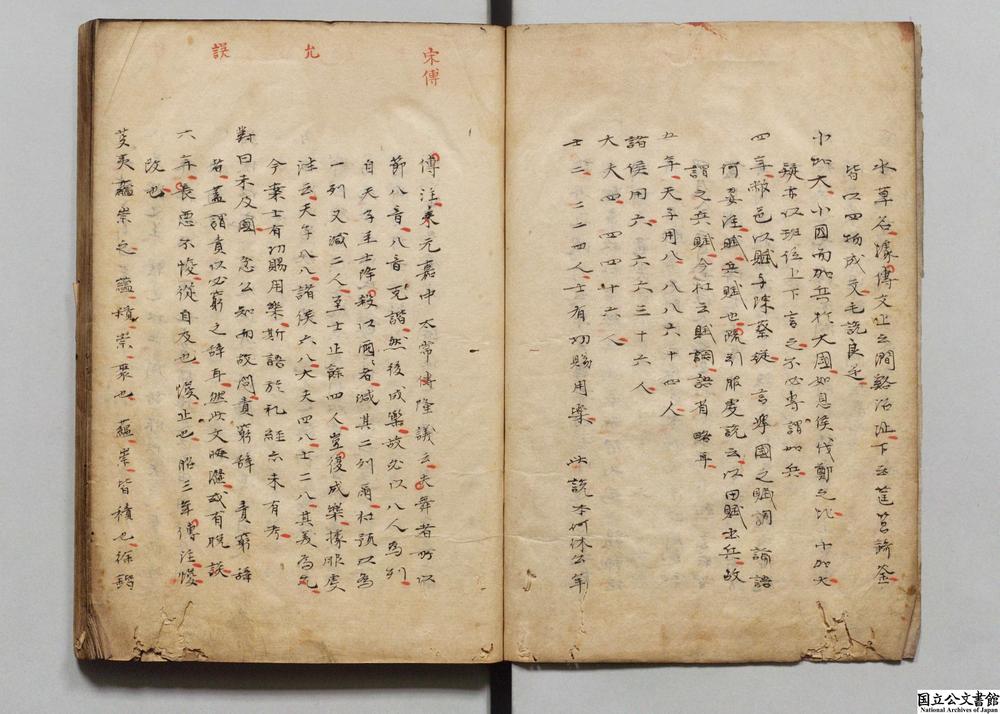 水草名據傳文止云澗谿沼沚下云筐筥錡釜
皆以四物成文毛說良是
小加大 小國而加兵於大國如息侯伐鄭之比 小加大
疑亦以班位上下言之不必專謂加兵
四年敝邑以賦与陳蔡從 言舉國之賦調 諭語
何晏注賦兵賦也疏引服虔說云以田賦出兵故
謂之兵賦今杜云賦調語省略耳
五年天子用八 八八六十四人
諸侯用六 六六三十六人
大夫四 四四十六人
士二 二二四人士有功賜用樂 此說本何休公羊
傳注宋元嘉中太常傅隆議云夫舞者所以
節八音八音克諧然後成樂故必以八人為列
自天子至士降殺以兩兩者減其二列爾杜預以為
一列又減二人至士止餘四人豈復成樂據服虔
注云天子八八諸侯六八大夫四八士二八其義為允
今案士有功賜用樂斯語於礼經亦未有考
對曰未及國 忿公知而故問責窮辭 責窮辭
者蓋謂責以必窮之辭耳然此文晦澀或有脫誤
六年長惡不悛從自及也 悛止也 昭三年傳注悛
改也
芟夷蘊崇之 蘊積崇聚也 蘊崇皆積也徐鍇
宋傅
允
誤
国立公文書館
National Archives of Japan